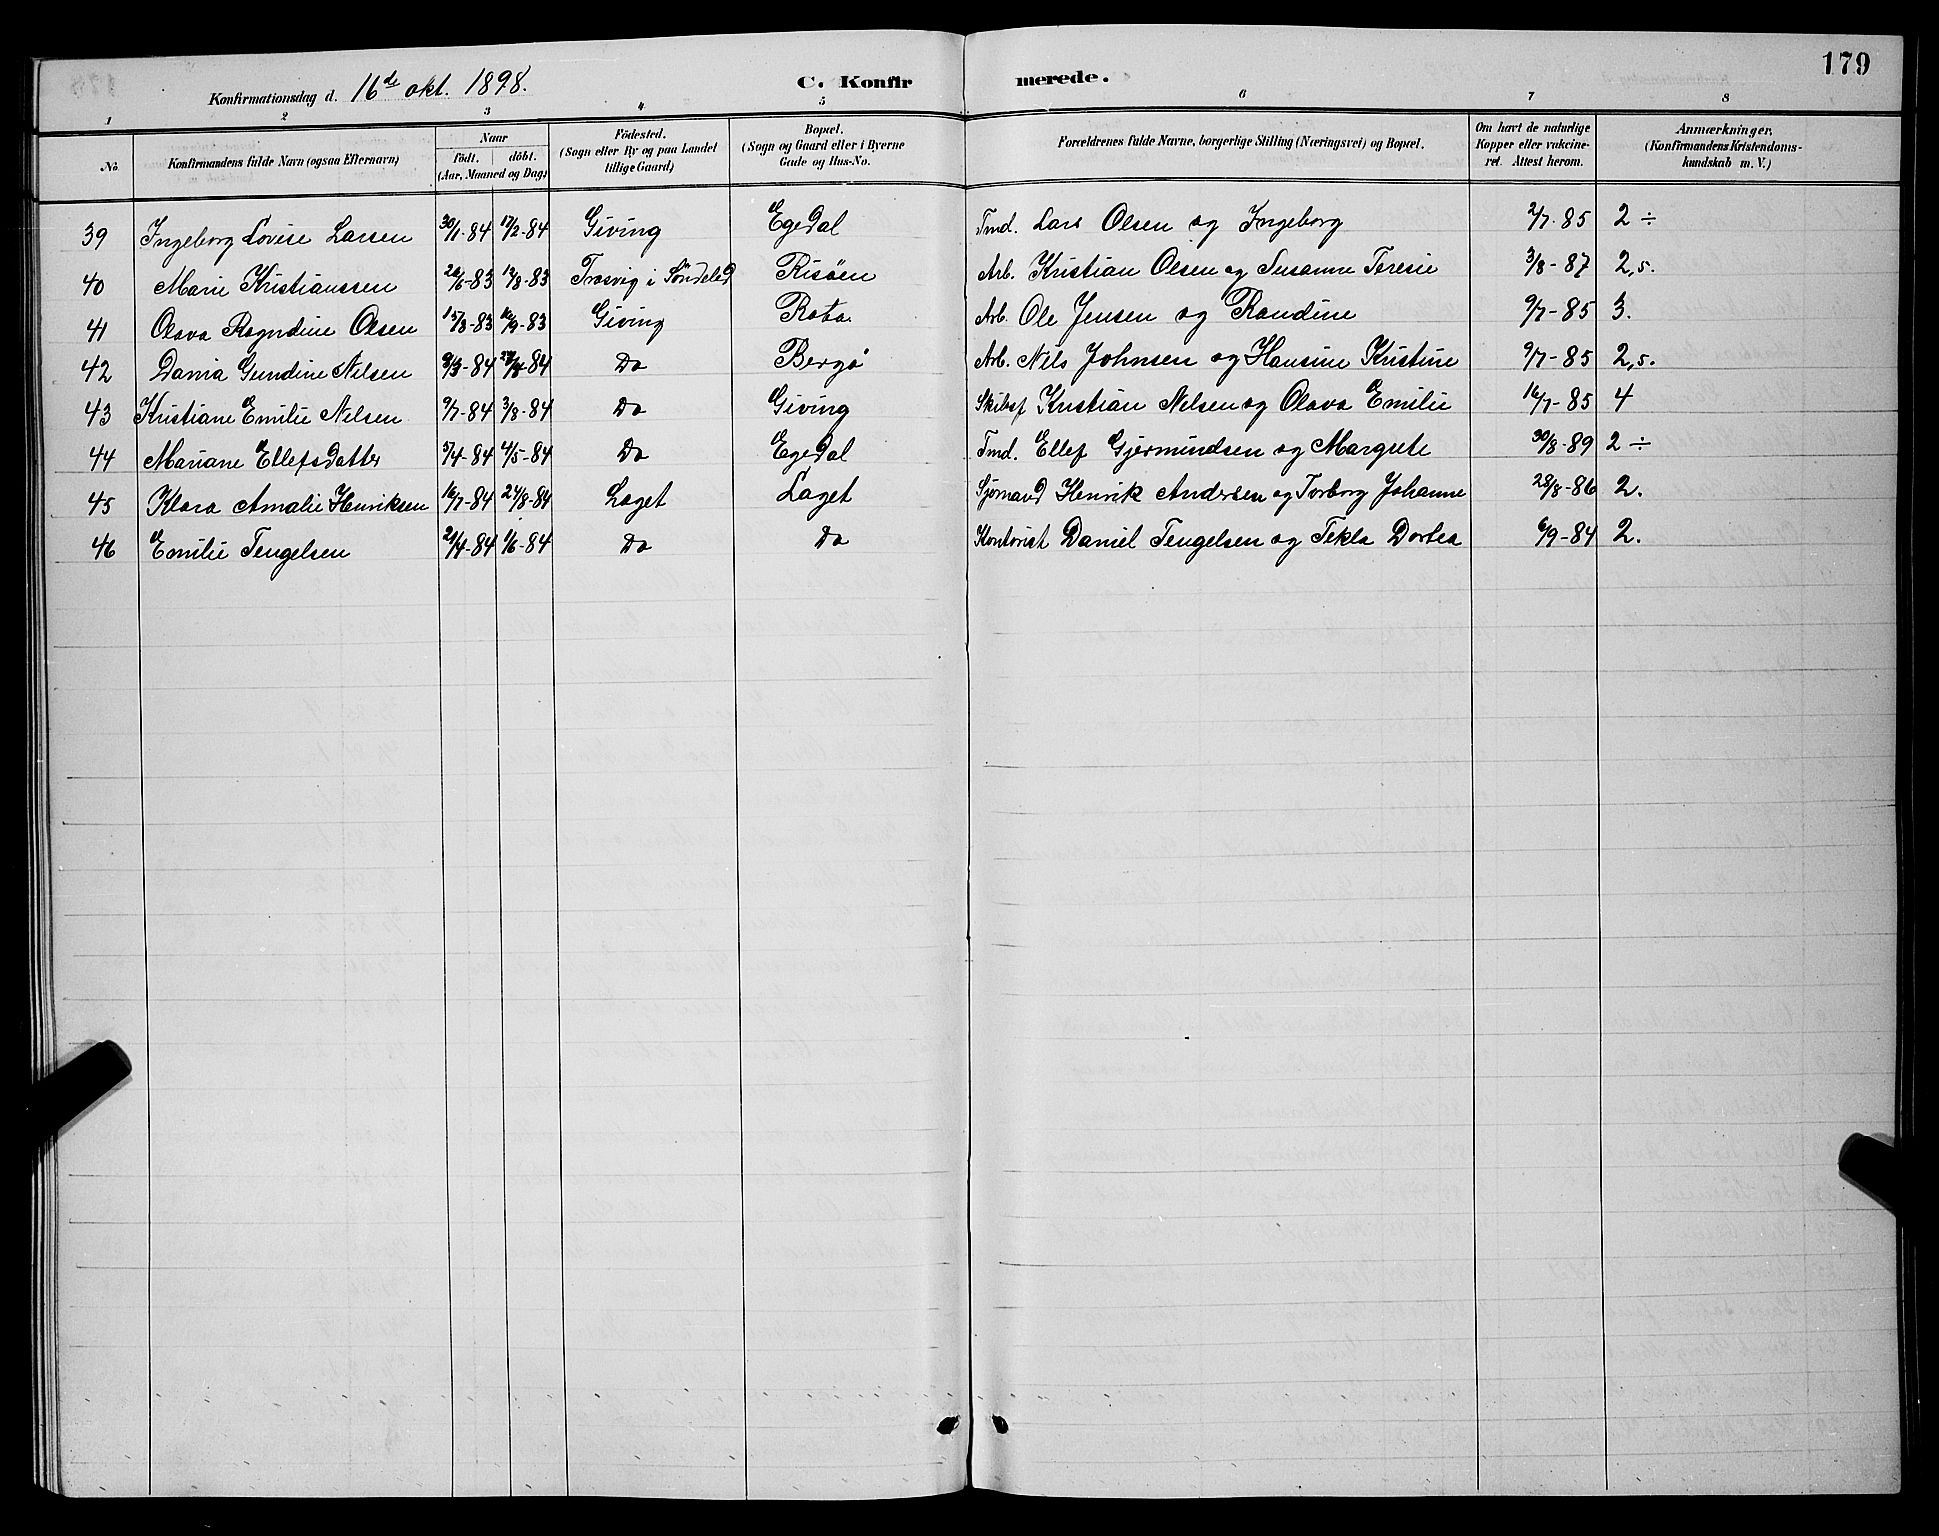 179
Konfirmationsdag d. 16de okt. 1898. C. Konfirmerede.
1 2 3 4 5 6 7 8
No. Konfirmandens fulde Navn (ogsaa Efternavn) Naar födt. döbt. (Aar, Maaned og Dag) Födested. (Sogn eller By og paa Landet tillige Gaard) Bopæl. (Sogn og Gaard eller i Byerne Gade og Hus-No. Forældrenes fulde Navne, borgerlige Stilling (Næringsvei) og Bopæl. Om havt de naturlige Kopper eller vakcineret. Attest herom. Anmærkninger. (Konfirmandens Kristendomskundskab m. V.)
39 Ingeborg Lovise Larsen 30/1-84 17/2-84 Giving Egedal Tmd. Lars Olsen og Ingeborg 2/7-85 2 ÷
40 Marie Kristianssen 26/6-83 12/8-83 Trosvig i Söndeled Risöen Arb. Kristian Olsen og Susanne Teresie 3/8-87 2,5.
41 Olava Ragndine Olsen 15/3-83 16/9-83 Giving Rota Arb. Ole Jensen og Randine 9/7-85 3.
42 Dania Gundine Nilsen 9/3-84 -84 Do Bergö Arb. Nils Johnsen og Hansine Kristine 9/7-85 2,5.
43 Kristiane Emilie Nilsen 9/7-84 3/8-84 Do Giving Skibsf Kristian Nilsen og Olava Emilie 16/7-85 4
44 Mariane Ellefsdatter 5/4-84 4/5-84 Do Egedal Tmd. Ellef Gjermundsen og Margrete 30/8-89 2 ÷
45 Klara Amalie Henriksen 16/7-84 24/8-84 Laget Laget Sjömand Henrik Andersen og Torborg Johanne 28/8-86 2.
46 Emilie Tengelsen 21/4-84 1/6-84 Do Do Kontorist Daniel Tengelsen og Tekla Dortea 6/9-84 2.